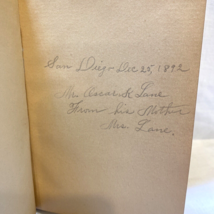 San Diego Dec 25, 1892
Mr. Oscar K Lane
From his Mother
Mrs Lane.